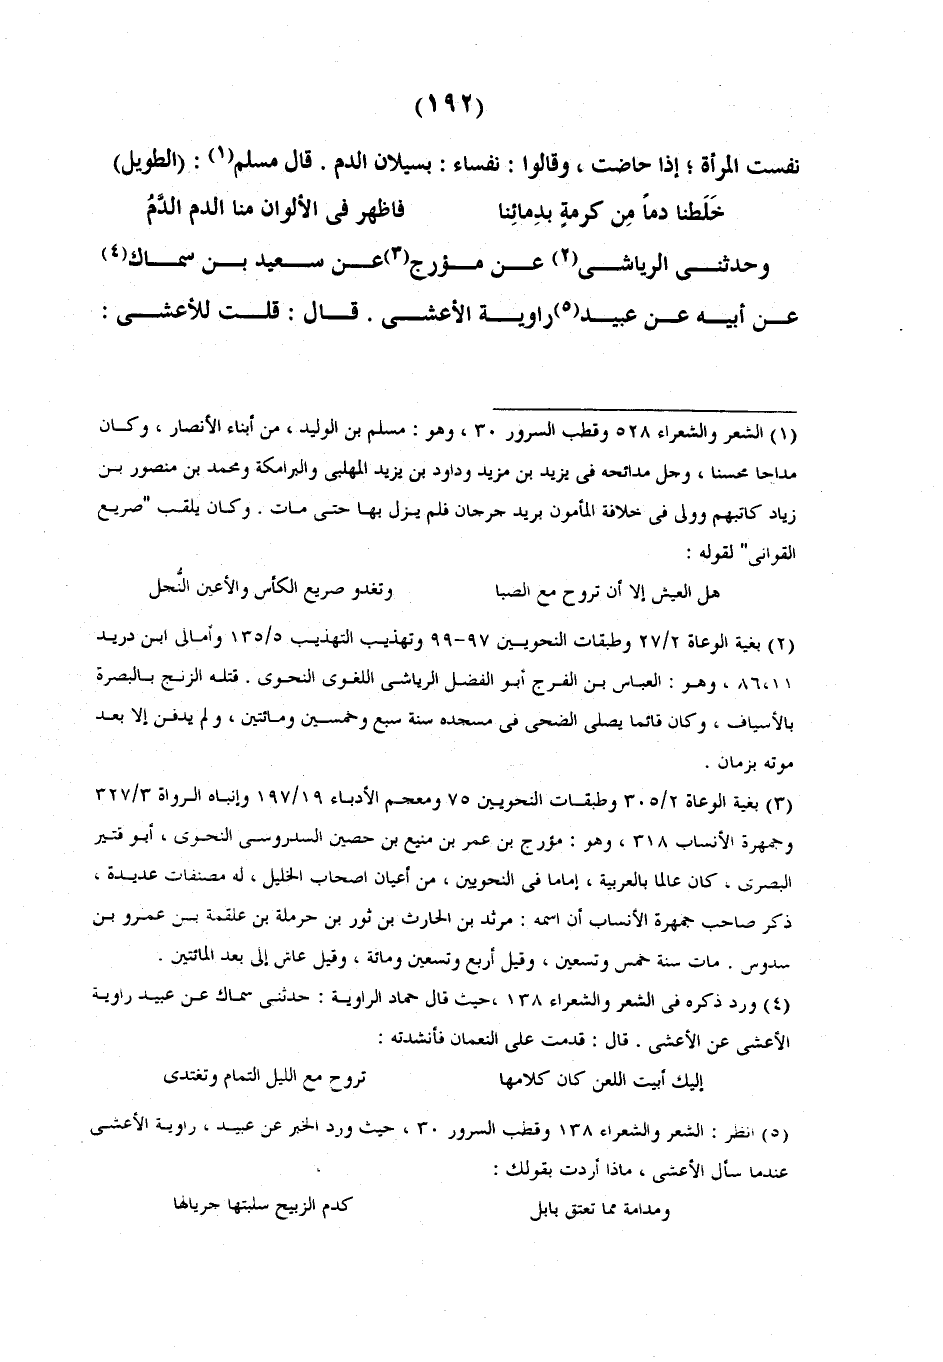 (١٩٢)
نفست المرأة ؛ إذا حاضت ، وقالوا : نفساء : بسيلان الدم . قال مسلم(١) : (الطويل)
خَلَطنا دماً مِن كرمةٍ بدِمائِنا فاظهر فى الألوان منا الدم الدَّمُ
وحدثنى الرياشى(٢) عن مؤرج(٣)عن سعيد بن سماك(٤)
عن أبيه عن عبيد(٥)راوية الأعشى . قال : قلت للأعشى :
(١) الشعر والشعراء ٥٢٨ وقطب السرور ٣٠ ، وهو : مسلم بن الوليد ، من أبناء الأنصار ، وكان
مداحا محسنا ، وجل مدائحه فى يزيد بن مزيد وداود بن يزيد المهلبى والبرامكة ومحمد بن منصور بن
زياد كاتبهم وولى فى خلافة المأمون بريد جرجان فلم يزل بها حتى مات . وكان يلقب "صريع
الغوانى" لقوله :
هل العيش إلا أن تروح مع الصبا وتغدو صريع الكأس والأعين النُّجل
(٢) بغية الوعاة ٢٧/٢ وطبقات النحويين ٩٧-٩٩ وتهذيب التهذيب ١٣٥/٥ وأمالى ابن دريد
٨٦،١١ ، وهو : العباس بن الفرج أبو الفضل الرياشى اللغوى النحوى . قتله الزنج بالبصرة
بالأسياف ، وكان قائما يصلى الضحى فى مسجده سنة سبع وخمسين ومائتين ، ولم يدفن إلا بعد
موته بزمان .
(٣) بغية الوعاة ٣٠٥/٢ وطبقات النحويين ٧٥ ومعجم الأدباء ١٩٧/١٩ وإنباه الرواة ٣٢٧/٣
وجمهرة الأنساب ٣١٨ ، وهو : مؤرج بن عمر بن منيع بن حصين السدروسى النحوى ، أبو فتير
البصرى ، كان عالما بالعربية ، إماما فى النحويين ، من أعيان اصحاب الخليل ، له مصنفات عديدة ،
ذكر صاحب جمهرة الأنساب أن اسمه : مرثد بن الحارث بن ثور بن حرملة بن علقمة بن عمرو بن
سدوس . مات سنة خمس وتسعين ، وقيل أربع وتسعين ومائة ، وقيل عاش إلى بعد المائتين .
(٤) ورد ذكره فى الشعر والشعراء ١٣٨ ،حيث قال حماد الراوية : حدثنى سماك عن عبيد راوية
الأعشى عن الأعشى . قال : قدمت على النعمان فأنشدته :
إليك أبيت اللعن كان كلامها تروح مع الليل التمام وتغتدى
(٥) انظر : الشعر والشعراء ١٣٨ وقطب السرور ٣٠ ، حيث ورد الخبر عن عبيد ، راوية الأعشى
عندما سأل الأعشى ، ماذا أردت بقولك :
ومدامة مما تعتق بابل كدم الزبيح سلبتها جريالها